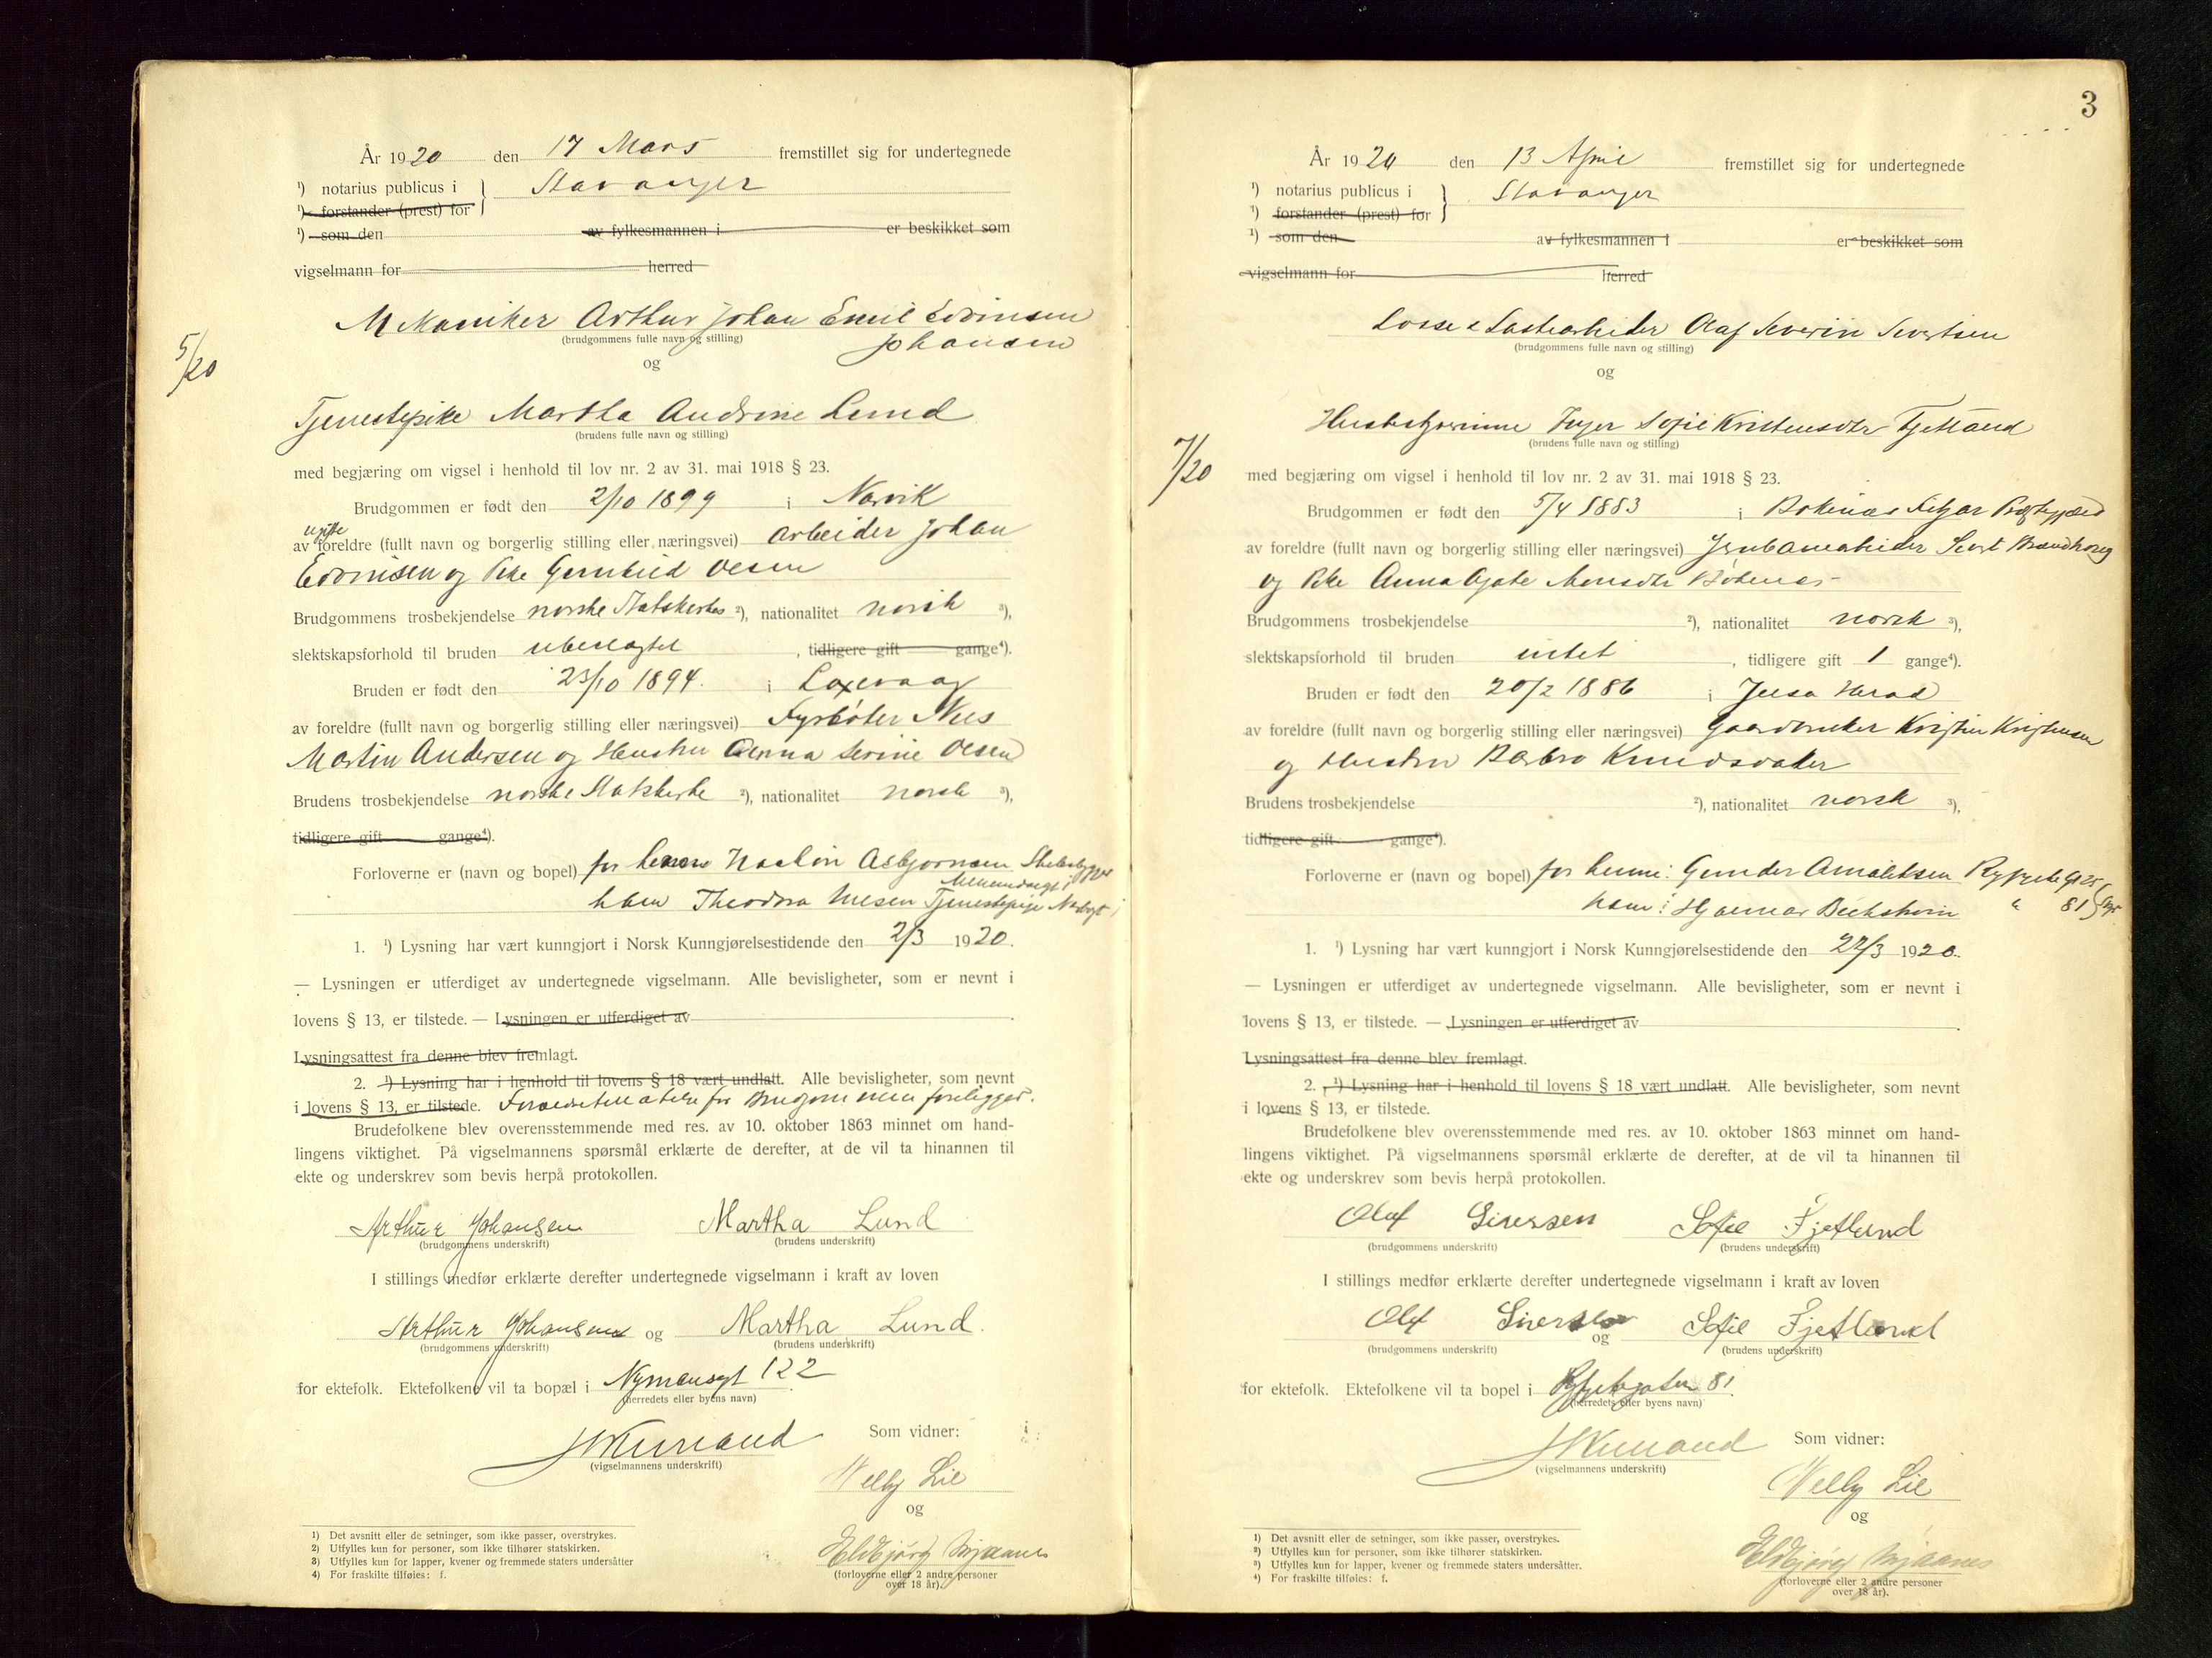 År 1920 den 17 Mars fremstillet sig for undertegnede
¹) notarius publicus i } Stavanger
¹) forstander (prest) for
¹) som den av fylkesmannen i er beskikket som
vigselmann for herred
Mekaniker Arthur Johan Emil Edvinsen
(brudgommens fulle navn og stilling) Johansen
og
5/20
Tjenestepike Martha Andrine Lund
(brudens fulle navn og stilling)
med begjæring om vigsel i henhold til lov nr. 2 av 31. mai 1918 § 23.
Brudgommen er født den 2/10 1899 i Narvik
ugifte
av foreldre (fullt navn og borgerlig stilling eller næringsvei) arbeider Johan
Edvinsen og Pike Gunhild Olsen
Brudgommens trosbekjendelse norske Statskirkes ²), nationalitet norsk ³),
slektskapsforhold til bruden ubeslagtet , tidligere gift gange⁴).
Bruden er født den 23/10 1894. i Laxevaag
av foreldre (fullt navn og borgerlig stilling eller næringsvei) Fyrbøter Nils
Martin Andersen og Hustru Anna Serine Olsen
Brudens trosbekjendelse norske Statskirke ²), nationalitet norsk ³),
tidligere gift gange⁴).
Forloverne er (navn og bopel) for henne Haakon Asbjørnsen
ham Theodora Tjenestepige
1. ¹) Lysning har vært kunngjort i Norsk Kunngjørelsestidende den 2/3 1920.
— Lysningen er utferdiget av undertegnede vigselmann. Alle bevisligheter, som er nevnt i
lovens § 13, er tilstede. — Lysningen er utferdiget av .
Lysningsattest fra denne blev fremlagt.
2. ¹) Lysning har i henhold til lovens § 18 vært undlatt. Alle bevisligheter, som nevnt
i lovens § 13, er tilstede. for Brudgommen foreligger.
Brudefolkene blev overensstemmende med res. av 10. oktober 1863 minnet om hand-
lingens viktighet. På vigselmannens spørsmål erklærte de derefter, at de vil ta hinannen til
ekte og underskrev som bevis herpå protokollen.
Arthur Johansen Martha Lund
(brudgommens underskrift) (brudens underskrift)
I stillings medfør erklærte derefter undertegnede vigselmann i kraft av loven
Arthur Johansen og Martha Lund.
(brudgommens underskrift) (brudens underskrift)
for ektefolk. Ektefolkene vil ta bopæl i Nymansgt 122
(herredets eller byens navn)
Som vidner:
(vigselmannens underskrift)
Welly Lie
og
Eldbjørg
(forloverne eller 2 andre personer
over 18 år).
1) Det avsnitt eller de setninger, som ikke passer, overstrykes.
2) Utfylles kun for personer, som ikke tilhører statskirken.
3) Utfylles kun for lapper, kvener og fremmede staters undersåtter
4) For fraskilte tilføies: f.
3
År 1920 den 13 April fremstillet sig for undertegnede
¹) notarius publicus i } Stavanger
¹) forstander (prest) for
¹) som den av fylkesmannen i er beskikket som
vigselmann for herred
Losse & Lastearbeider Olaf Severin Sivertsen
(brudgommens fulle navn og stilling)
og
Husbestyrerinne Inger Sofie Kristensdtr Fjetland
(brudens fulle navn og stilling)
7/20
med begjæring om vigsel i henhold til lov nr. 2 av 31. mai 1918 § 23.
Brudgommen er født den 5/4 1883 i Bokenæs Fitjar
av foreldre (fullt navn og borgerlig stilling eller næringsvei) Jernbanearbeider Sivert
og Pike Anna Agate Monsdtr Bokenæs
Brudgommens trosbekjendelse ²), nationalitet norsk ³),
slektskapsforhold til bruden intet , tidligere gift 1 gange⁴).
Bruden er født den 20/2 1886 i Jelsa Herad
av foreldre (fullt navn og borgerlig stilling eller næringsvei) Gaardbruker Kristen Kristensen
og Hustru Barbro Knudsdatter
Brudens trosbekjendelse ²), nationalitet norsk ³),
tidligere gift gange⁴).
Forloverne er (navn og bopel) for henne: Gunder Amaliksen Ryfylke Gt 25
ham: Hjalmar " 81
1. ¹) Lysning har vært kunngjort i Norsk Kunngjørelsestidende den 22/3 1920.
— Lysningen er utferdiget av undertegnede vigselmann. Alle bevisligheter, som er nevnt i
lovens § 13, er tilstede. — Lysningen er utferdiget av .
Lysningsattest fra denne blev fremlagt.
2. ¹) Lysning har i henhold til lovens § 18 vært undlatt. Alle bevisligheter, som nevnt
i lovens § 13, er tilstede.
Brudefolkene blev overensstemmende med res. av 10. oktober 1863 minnet om hand-
lingens viktighet. På vigselmannens spørsmål erklærte de derefter, at de vil ta hinannen til
ekte og underskrev som bevis herpå protokollen.
Olaf Siversen Sofie Fjetland
(brudgommens underskrift) (brudens underskrift)
I stillings medfør erklærte derefter undertegnede vigselmann i kraft av loven
Olaf Siversen og Sofie Fjetland
(brudgommens underskrift) (brudens underskrift)
for ektefolk. Ektefolkene vil ta bopel i Ryfylkegaten 81.
(herredets eller byens navn)
Som vidner:
(vigselmannens underskrift)
Welly Lie
og
Eldbjørg
(forloverne eller 2 andre personer
over 18 år).
¹) Det avsnitt eller de setninger, som ikke passer, overstrykes.
²) Utfylles kun for personer, som ikke tilhører statskirken.
³) Utfylles kun for lapper, kvener og fremmede staters undersåtter.
⁴) For fraskilte tilføies: f.